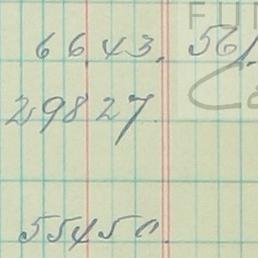 66.43. 56.
29827.
55450.